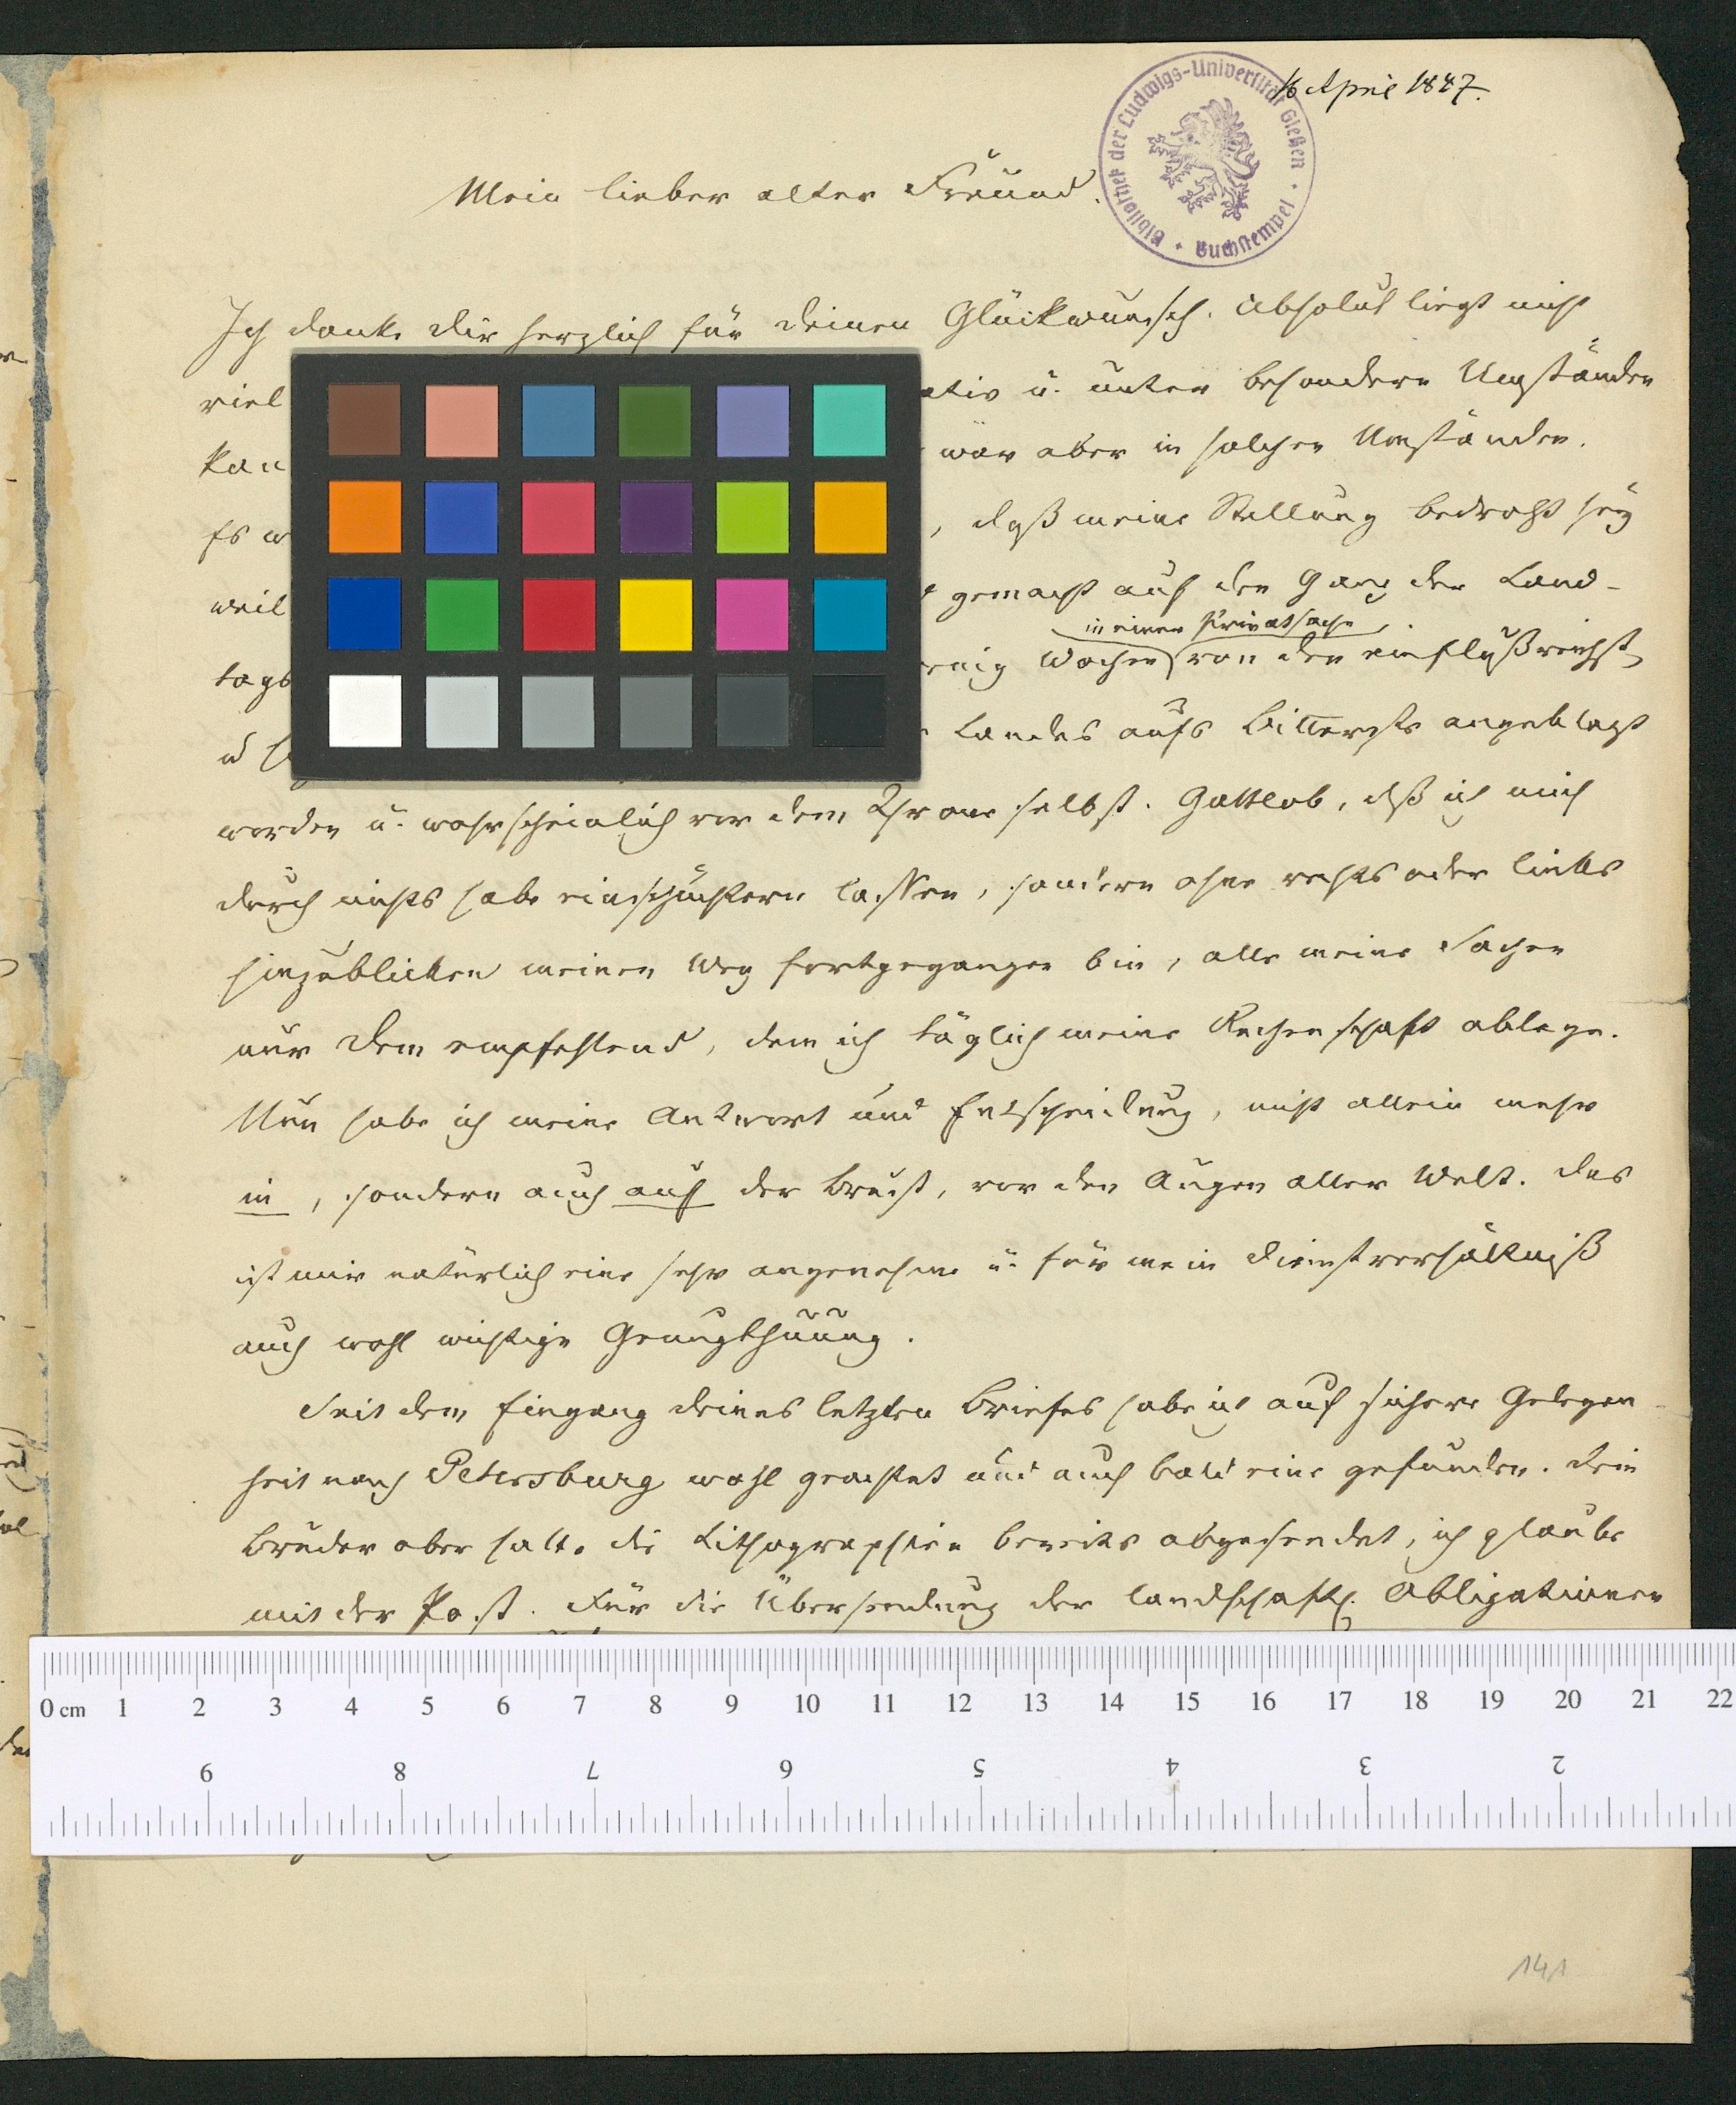 16 April 1847.
Bibliothek der Ludwigs-Universität Gießen · Buchstempel ·
Mein lieber alter Freund.
Ich danke dir herzlich für deinen Glückwunsch. Absolut liegt nicht
viel ativ u. unter besondern Umständen
kan war aber in solchen Umständen.
Es w , daß meine Stellung bedroht sey
weil gemacht auf den Gang der Land-
in einer Privatsache
tags enig Wochen von den einflußreichst
Landes aufs Bitterste angeklagt
worden u. wahrscheinlich vor dem Throne selbst. Gottlob, daß ich mich
durch nichts habe einschüchtern lassen, sondern ohne rechts oder links
hinzublicken meinen Weg fortgegangen bin, alle meine Sachen
nur dem empfehlend, dem ich täglich meine Rechenschaft ablege.
Nun habe ich meine Antwort und Entscheidung, nicht allein mehr
in, sondern auch auf der Brust, vor den Augen aller Welt. Das
ist mir natürlich eine sehr angenehme u. für mein Dienstverhältniß
auch wohl wichtige Genugthuung.
Seit dem Eingang deines letzten Briefes habe ich auf sichere Gelegen-
heit nach Petersburg wohl geachtet und auch bald eine gefunden. Dein
Bruder aber hatte die Lithographien bereits abgesendet, ich glaube
mit der Post. Für die Übersendung der landschaftl. Obligationen
0 cm 1 2 3 4 5 6 7 8 9 10 11 12 13 14 15 16 17 18 19 20 21 22
9 8 7 6 5 4 3 2
141